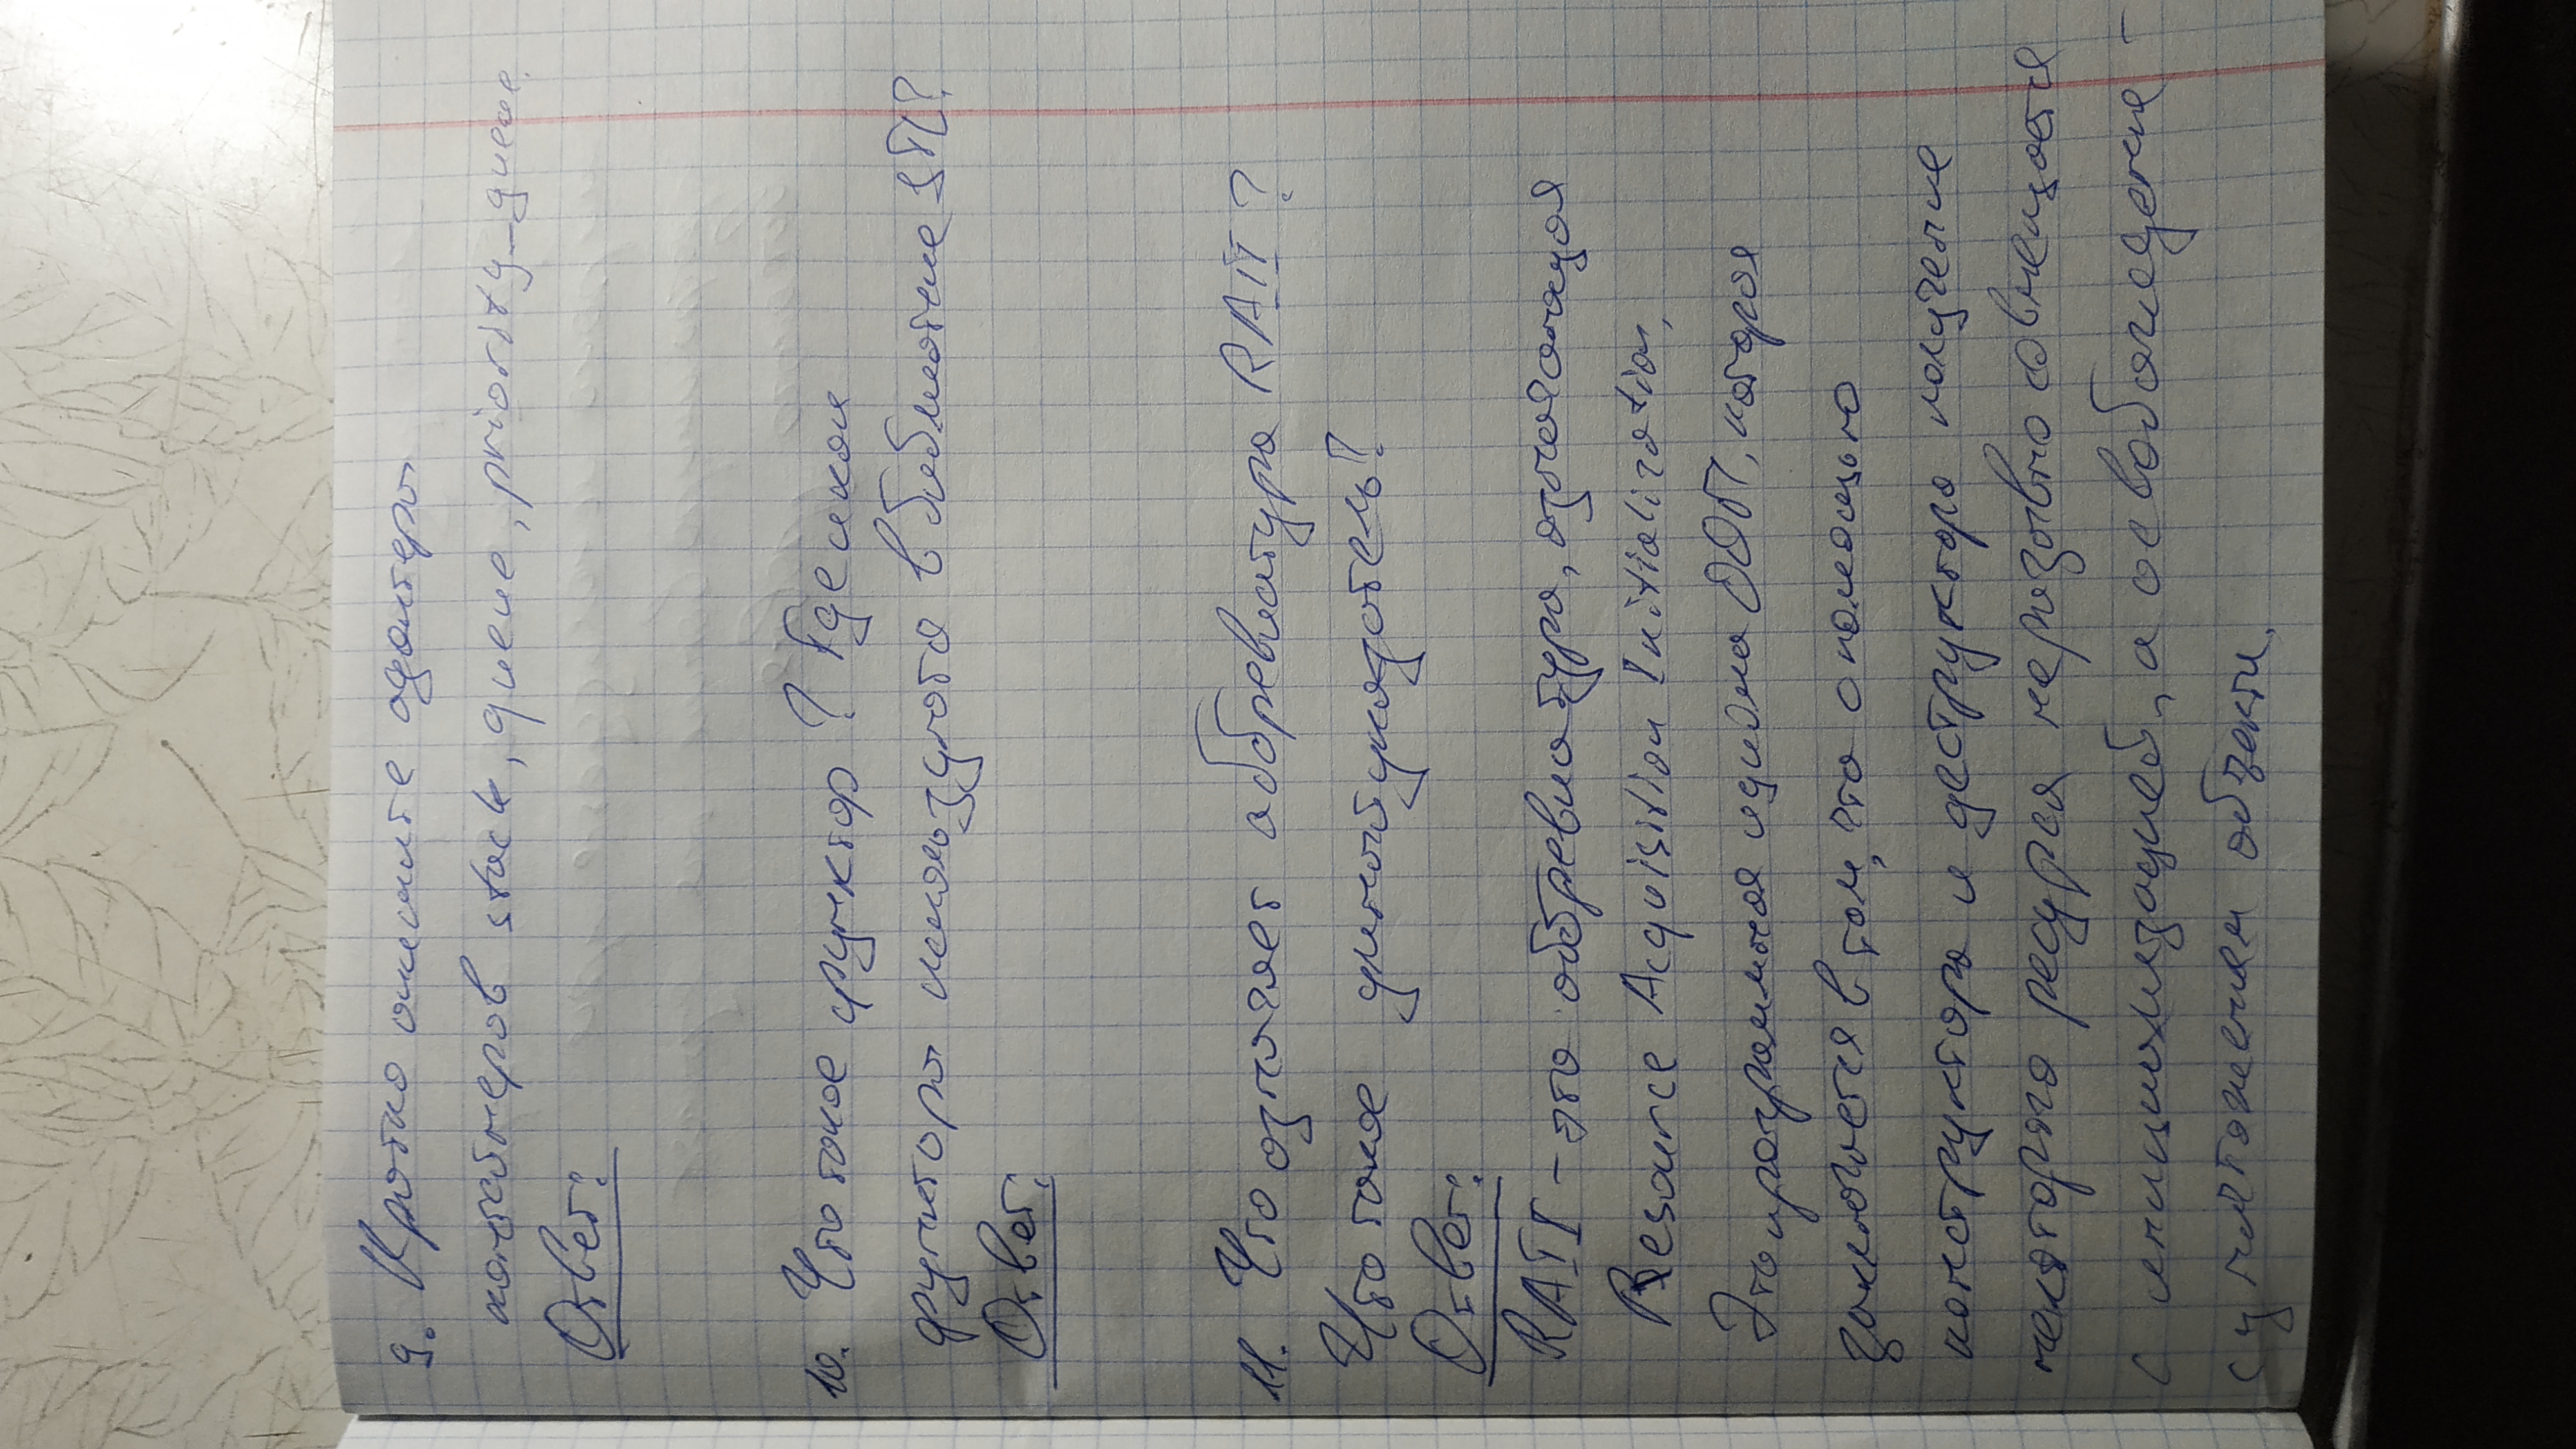 9. Кратко опишите адаптеры
контейнеров stack, queue, priority_queue.
Ответ:
10. Что такое функтор? Где и как
функторы используются в библиотеке STL?
Ответ:
11. Что означает аббревиатура RAII?
Что такое умный указатель?
Ответ:
RAII - это аббревиатура, означающая
Resource Acquisition Initialization,
Это программная идиома ООП, которая
заключается в том, что с помощью
конструктора и деструктора получение
некоторого ресурса неразрывно совмещается
с инициализацией, а освобождение -
с уничтожением объекта.